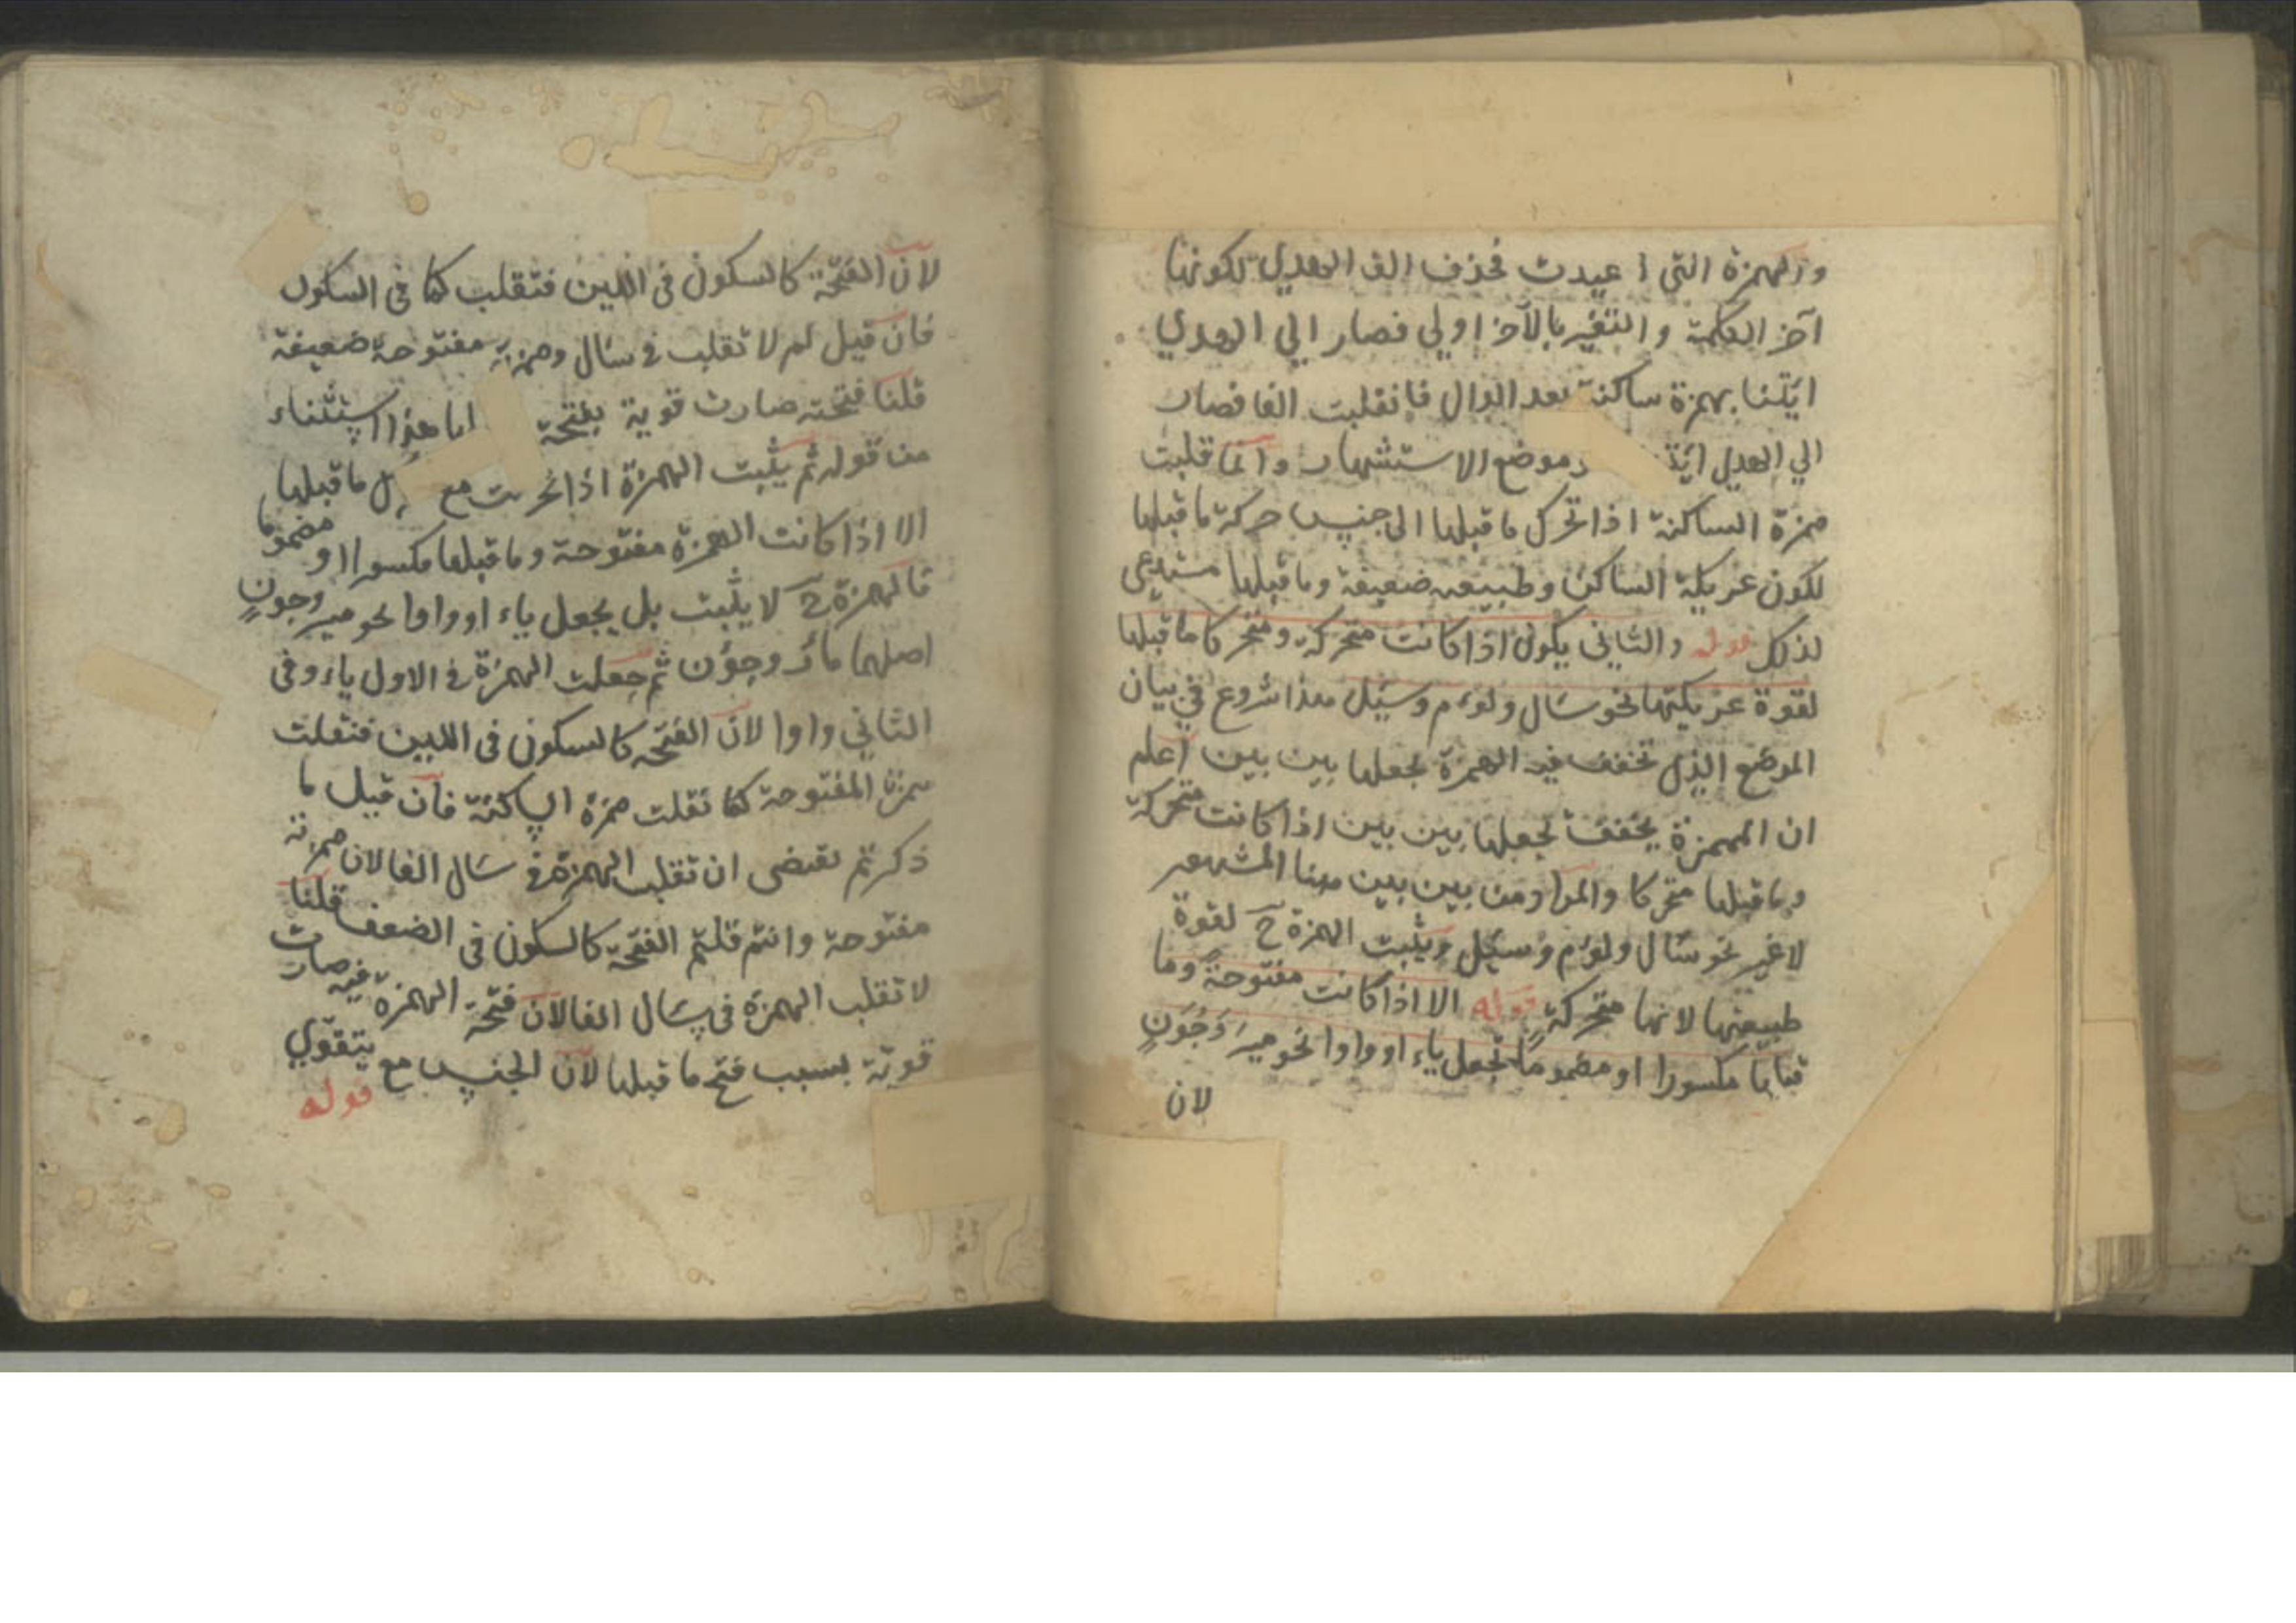 والهمزة التي اعيدت فحذف الف الهدي لكونها
آخر الكلمة والتغير بالآخر اولي فصار الي الهدي
ائتنا بهمزة ساكنة بعد الدال فانقلبت الفا فصار
الي الهدي موضع الاستشهاد وانما قلبت
همزة الساكنة اذا تحرك ما قبلها الى جنس حركة ما قبلها
لكون عريكة الساكن وطبيعته ضعيفة وما قبلها مستدعي
لذلك قوله والثاني يكون اذا كانت متحركة ومتحركا ما قبلها
لقوة عريكتها نحو سأل ولؤم وسئل هذا شروع في بيان
الموضع الذي تخفف فيه الهمزة بجعلها بين بين اعلم
ان الهمزة يخفف بجعلها بين بين اذا كانت متحركة
وما قبلها متحركا والمراد من بين بين هنا المشهور
لا غير نحو سأل ولؤم وسئل ويثبت الهمزة ح لقوة
طبيعتها لانها متحركة قوله الا اذا كانت مفتوحة وما
قبلها مكسورا او مضموما تجعل ياء او واوا نحو مير وجون
لان
لان الفتحة كالسكون في اللين فتقلب كما في السكون
فان قيل لم لا تقلب في سأل وهمزته مفتوحة ضعيفة
قلنا فتحته صارت قوية بفتحة هذا استثناء
من قوله ثم يثبت الهمزة اذا تحركت مع ما قبلها
الا اذا كانت الهمزة مفتوحة وما قبلها مكسورا او مضموما
فالهمزة ح لا يثبت بل يجعل ياء او واوا نحو مير وجون
اصلهما مأر وجؤن ثم جعلت الهمزة في الاول ياء وفي
الثاني واوا لان الفتحة كالسكون في اللين فنقلت
همزة المفتوحة كما نقلت همزة الساكنة فان قيل ما
ذكرتم يقتضى ان تقلب الهمزة في سأل الفا لان همزته
مفتوحة وانتم قلتم الفتحة كالسكون في الضعف قلنا
لا تقلب الهمزة في سأل الفا لان فتحة الهمزة فيه صارت
قوية بسبب فتح ما قبلها لان الجنس مع يتقوي
قوله